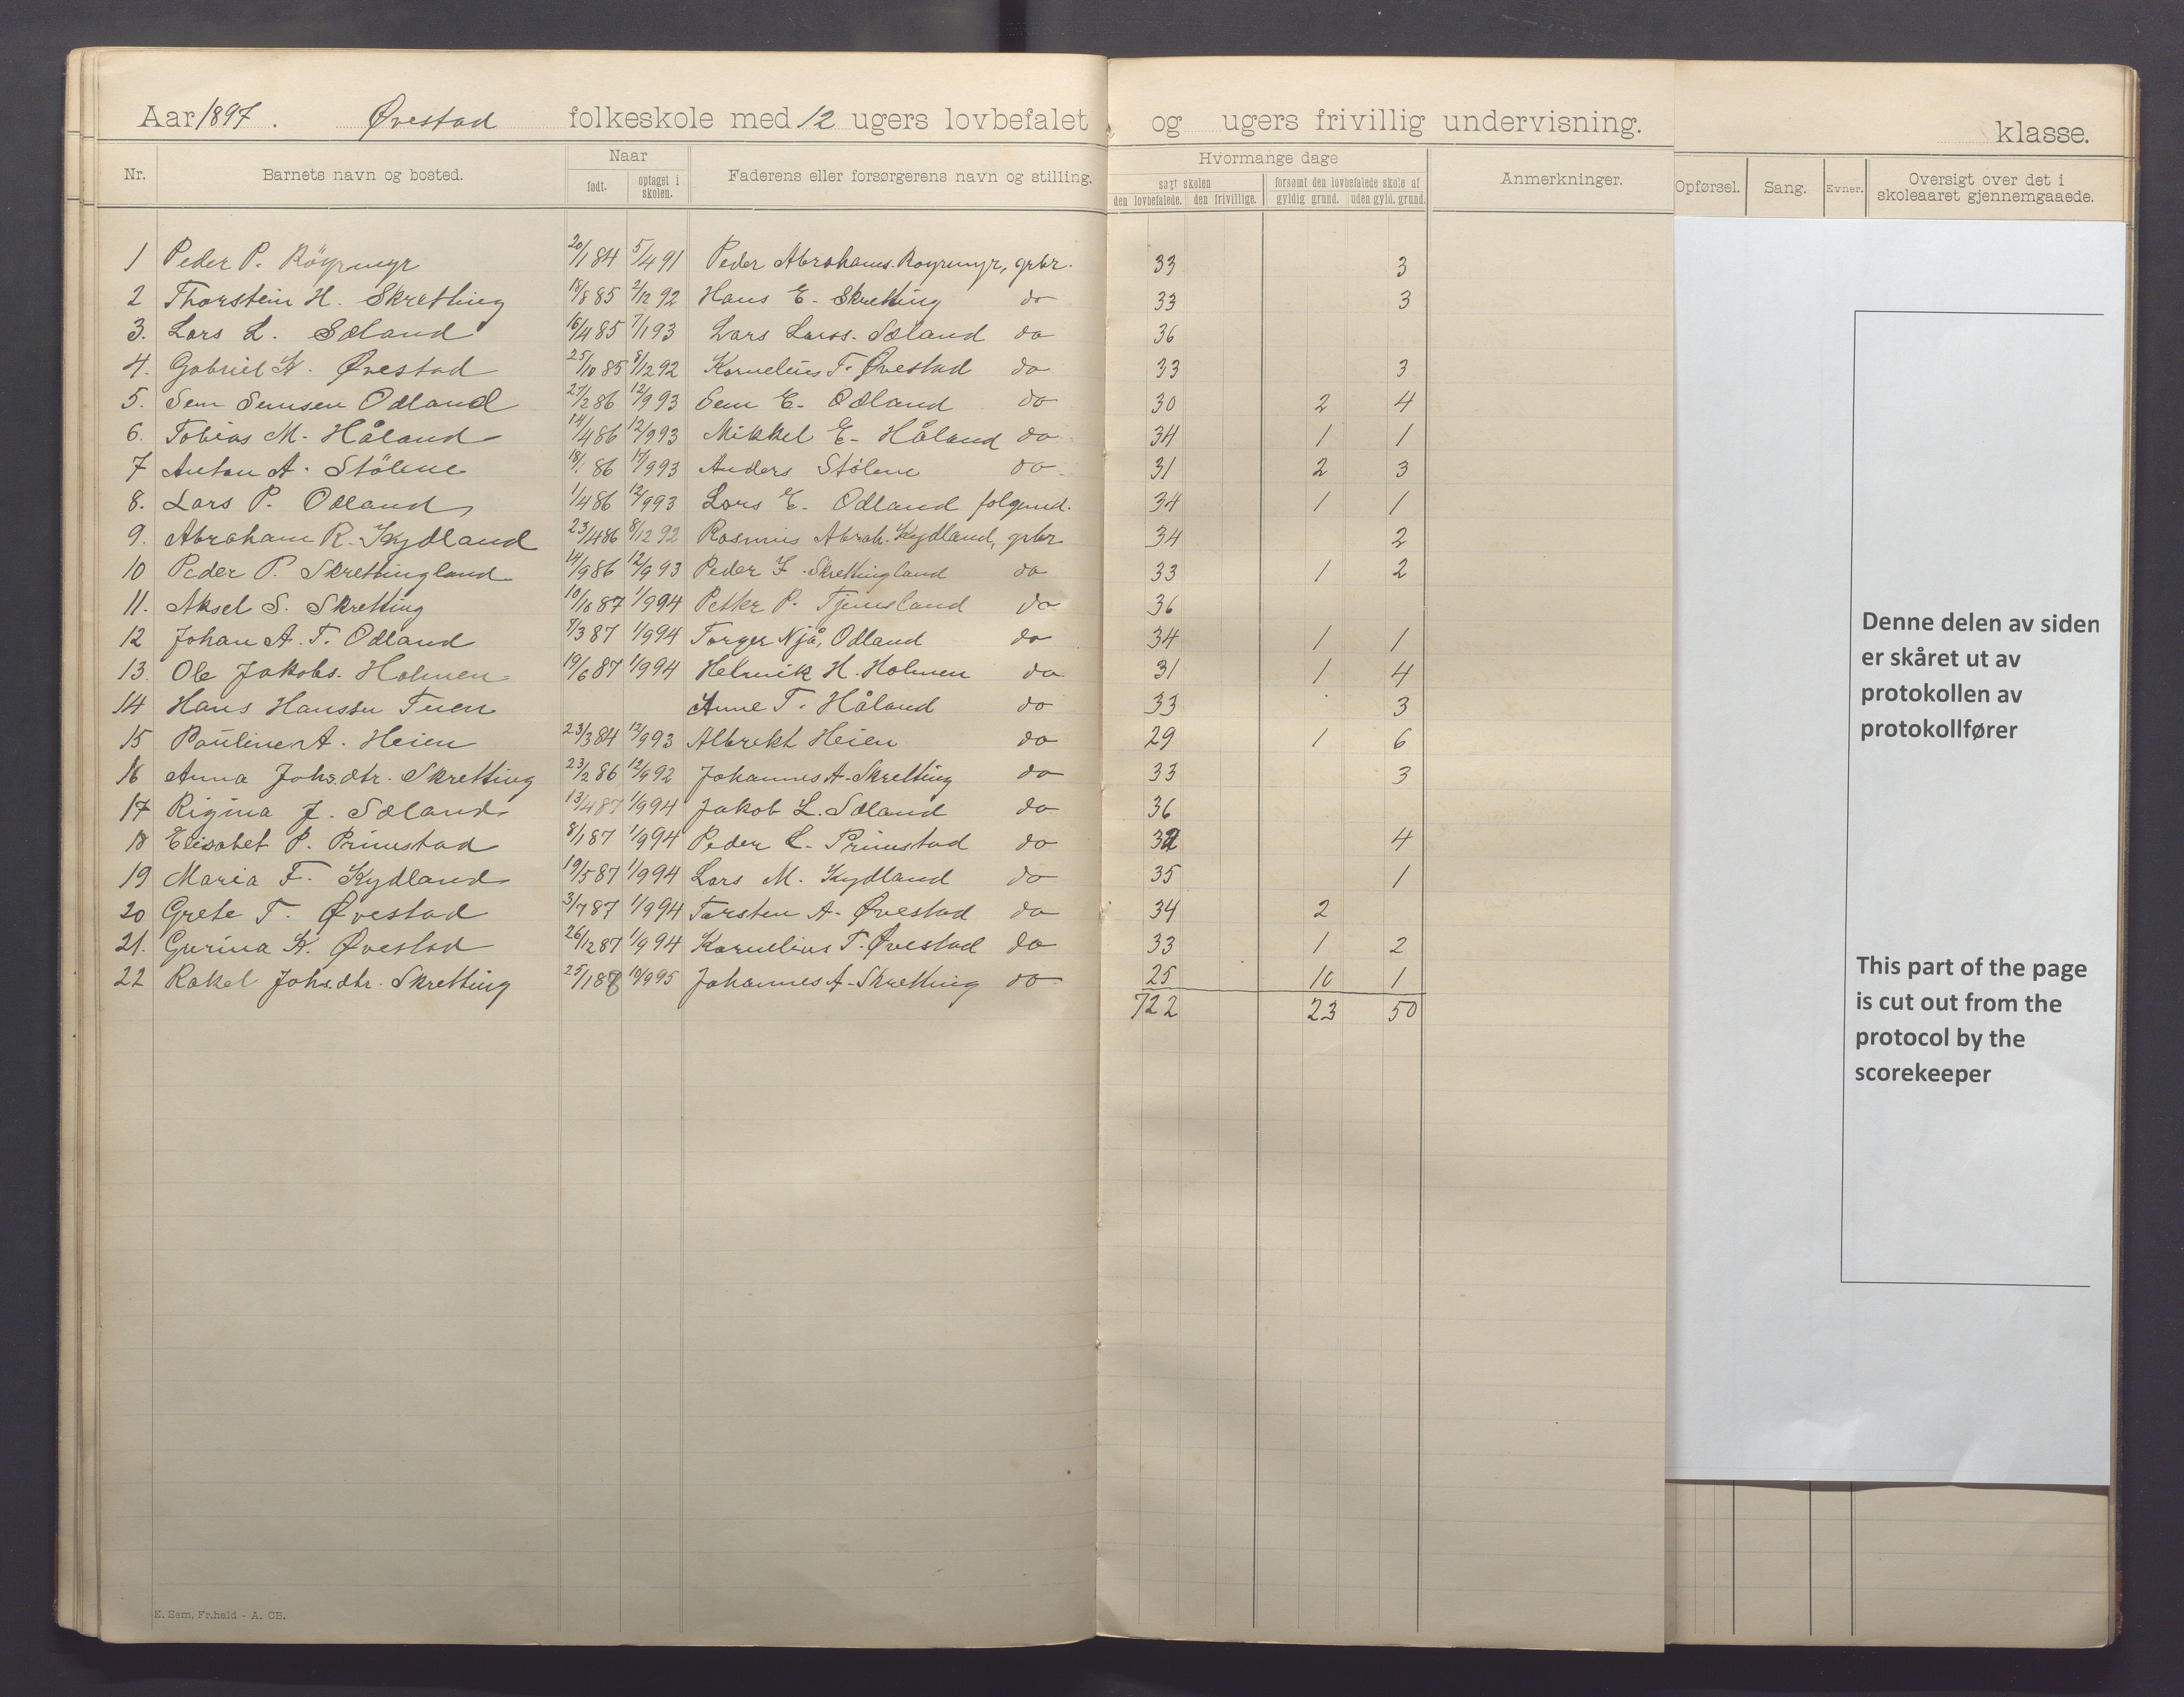 Aar 1897. Øvestad folkeskole med 12 ugers lovbefalet og ugers frivillig undervisning. klasse.
Nr. Barnets navn og bosted. Naar Faderens eller forsørgerens navn og stilling. Hvormange dage Anmerkninger. Opførsel. Sang. Evner. Oversigt over det i skoleaaret gjennemgaaede.
født. optaget i skolen. søgt skolen forsømt den lovbefalede skole af
den lovbefalede. den frivillige. gyldig grund. uden gyld. grund.
1 Peder P. Röyrmyr 20/1 84 5/4 91 Peder Abrahams. Royrmyr, grbr. 33 3
2 Thorstein H. Skretting 18/8 85 2/12 92 Hans E. Skretting do 33 3
3. Lars L. Sæland 16/4 85 7/1 93 Lars Larss. Sæland do 36
4. Gabriel K. Øvestad 25/10 85 8/12 92 Kornelius T. Øvestad do 33 3
5. Sem Semsen Odland 27/2 86 12/9 93 Sem E. Odland do 30 2 4
6. Tobias M. Håland 14/4 86 12/9 93 Mikkel E. Håland do 34 1 1
7 Anton A. Stölene 18/1 86 17/9 93 Anders Stølene do 31 2 3
8. Lars P. Odland 1/4 86 12/9 93 Lars E. Odland folgemd. 34 1 1
9. Abraham R. Kydland 23/4 86 8/12 92 Rasmus Abrah. Kydland, grbr 34 2
10 Peder P. Skrettingland 14/9 86 12/9 93 Peder F. Skrettingland do 33 1 2
11. Aksel S. Skretting 10/10 87 1/9 94 Petter P. Tjemsland do 36
12 Johan A. T. Odland 7/3 87 1/9 94 Torger Njå, Odland do 34 1 1
13. Ole Jakobs. Holmen 19/6 87 1/9 94 Helmik H. Holmen do 31 1 4
14 Hans Hanssen Tuen Anne T. Håland do 33 3
15 Pauline A. Heien 23/3 84 12/9 93 Albrekt Heien do 29 1 6
16 Anna Johs.dtr. Skretting 23/2 86 12/9 92 Johannes A. Skretting do 33 3
17 Rigina J. Sæland 13/4 87 1/9 94 Jakob L. Sæland do 36
18 Elisabet P. Prinstad 8/1 87 1/9 94 Peder L. Prinstad do 32 4
19 Maria F. Kydland 19/5 87 1/9 94 Lars M. Kydland do 35 1
20 Grete T. Øvestad 3/7 87 1/9 94 Torsten A. Øvestad do 34 2
21. Gurina K. Øvestad 26/12 87 1/9 94 Kornelius T. Øvestad do 33 1 2
22 Rakel Johs.dtr. Skretting 25/1 88 10/9 95 Johannes A. Skretting do 25 10 1
722 23 50
Denne delen av siden
er skåret ut av
protokollen av
protokollfører
This part of the page
is cut out from the
protocol by the
scorekeeper
E. Sem, Fr.hald - A. CB.